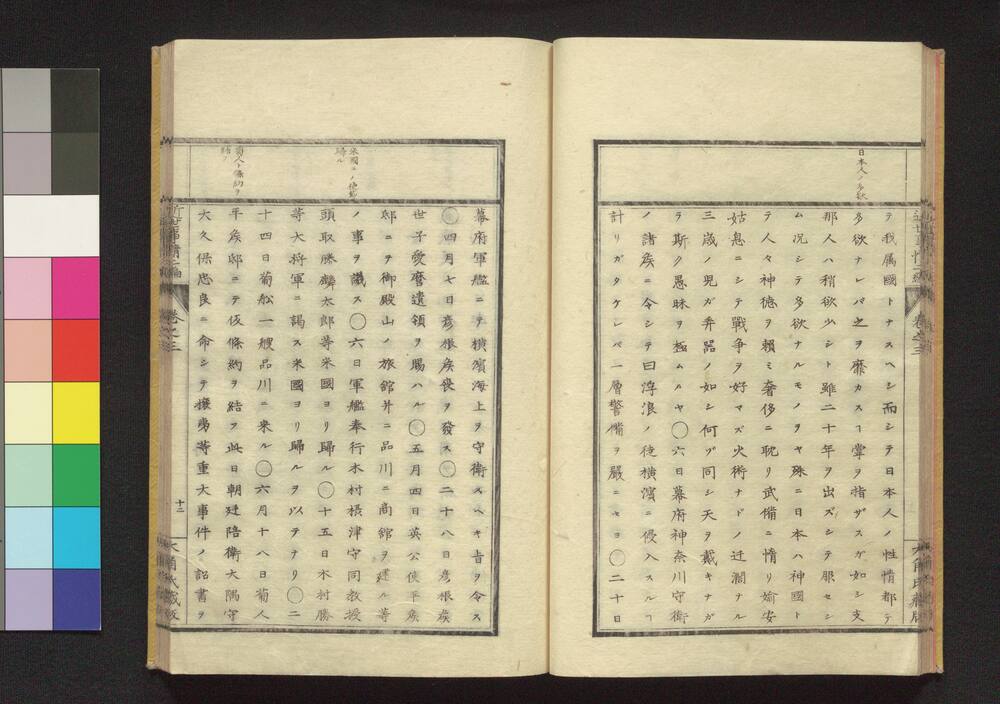 日本人ノ多欲
テ我属國トナスヘシ而シテ日本人ノ性情都テ
多欲ナレバ之ヲ靡カスヿ掌ヲ指ザスガ如シ支
那人ハ稍欲少シト雖二十年ヲ出ズシテ服セシ
ム况シテ多欲ナルモノヲヤ殊ニ日本ハ神國ト
テ人々神徳ヲ頼ミ奢侈ニ耽リ武備ニ惰リ婾安
姑息ニシテ戰爭ヲ好マズ火術ナドノ迂濶ナル
三歳ノ児ガ弄器ノ如シ何ゾ同シ天ヲ戴キナガ
ラ斯ク愚昧ヲ極ムルヤ〇六日幕府神奈川守衛
ノ諸矦ニ令シテ曰浮浪ノ徒横濱ニ侵入スルヿ
計リガタケレバ一層警備ヲ嚴ニセヨ〇二十日
幕府軍艦ニテ横濱海上ヲ守衛スヘキ旨ヲ令ス
〇四月七日彦根矦喪ヲ發ス〇二十八日彦根矦
世子愛麿遺領ヲ賜ハル〇五月四日英公使平矦
邸ニテ御殿山ノ旅舘并ニ品川ニ商舘ヲ建ル等
ノ事ヲ議ス〇六日軍艦奉行木村摂津守同教授
頭取勝麟太郎等米國ヨリ歸ル〇十五日木村勝
等大将軍ニ謁ス米國ヨリ歸ルヲ以テナリ〇二
十四日葡船一艘品川ニ来ル〇六月十八日葡人
平矦邸ニテ仮條約ヲ結ヲ此日朝廷陪衛大隅守
大久保忠良ニ命シテ攘夷等重大事件ノ詔書ヲ
米國ヱノ使節
歸ル
葡人ト條約ヲ
結フ
卷之三
十二